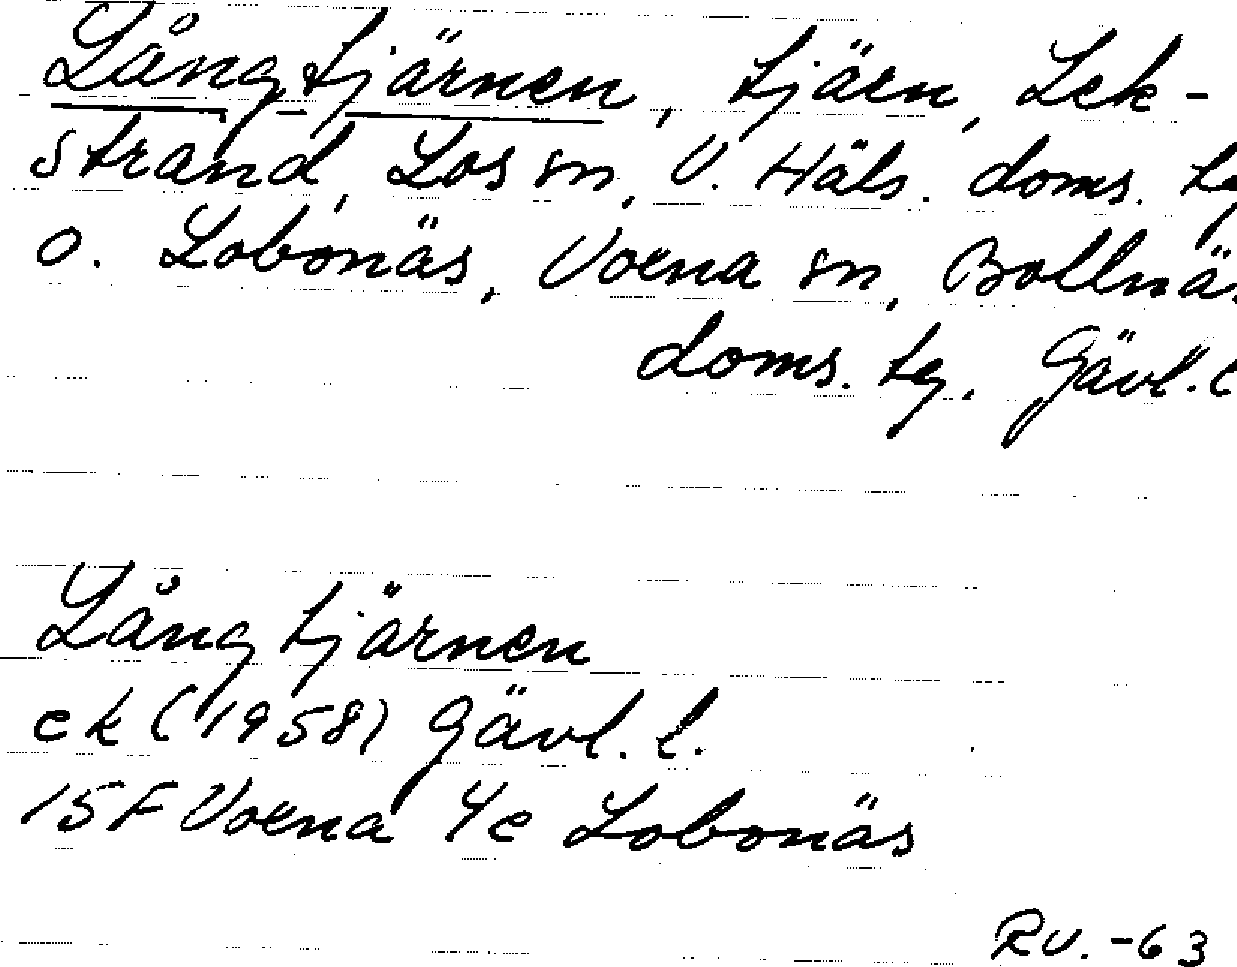 Långtjärnen, tjärn, Lek-
strand, Los sn, V. Häls. doms. tg
o. Lobonäs, Voxna sn, Bollnäs
doms. tg. Gävl. l
Långtjärnen
ek (1958) Gävl. l.
15F Voxna 4e Lobonäs
RV. -63